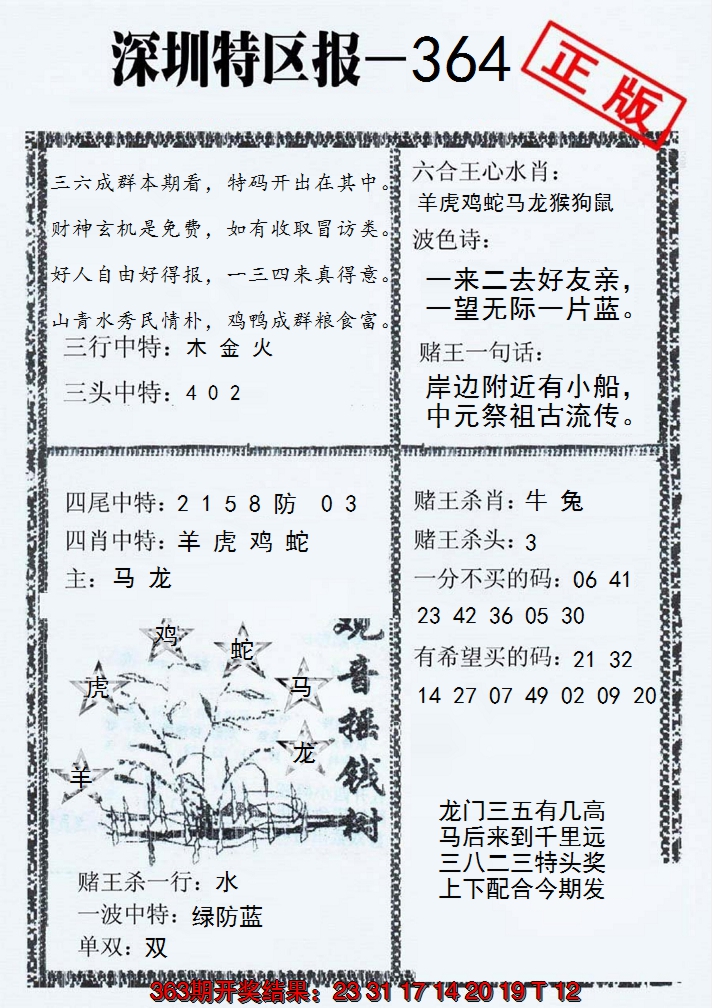 深圳特区报—364
正版
三六成群本期看，特码开出在其中。
财神玄机是免费，如有收取冒访类。
好人自由好得报，一三四来真得意。
山青水秀民情朴，鸡鸭成群粮食富。
三行中特：木 金 火
三头中特：4 0 2
六合王心水肖：
羊虎鸡蛇马龙猴狗鼠
波色诗：
一来二去好友亲，
一望无际一片蓝。
赌王一句话：
岸边附近有小船，
中元祭祖古流传。
四尾中特：2 1 5 8 防 0 3
四肖中特：羊 虎 鸡 蛇
主：马 龙
鸡
蛇
虎
马
龙
羊
观音摇钱树
赌王杀一行：水
一波中特：绿防蓝
单双：双
赌王杀肖：牛 兔
赌王杀头：3
一分不买的码：06 41
23 42 36 05 30
有希望买的码：21 32
14 27 07 49 02 09 20
龙门三五有几高
马后来到千里远
三八二三特头奖
上下配合今期发
363期开奖结果：23 31 17 14 20 19 T 12